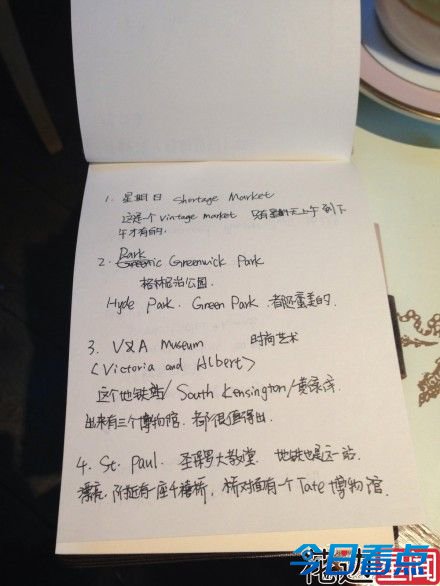 1. 星期日 Shortage Market
这是一个 Vintage market 只有星期天上午到下
午才有的.
Park
2. Greenwick Park
格林尼治公园.
Hyde Park. Green Park 都蛮美的.
3. V&A Museum 时尚艺术
(Victoria and Albert)
这个地铁站/South Kensington/黄绿线
出来有三个博物馆. 都很值得去.
4. St. Paul. 圣保罗大教堂. 地铁也是这一站.
附近有一座千禧桥, 桥对面有一个 Tate 博物馆.
今日看点